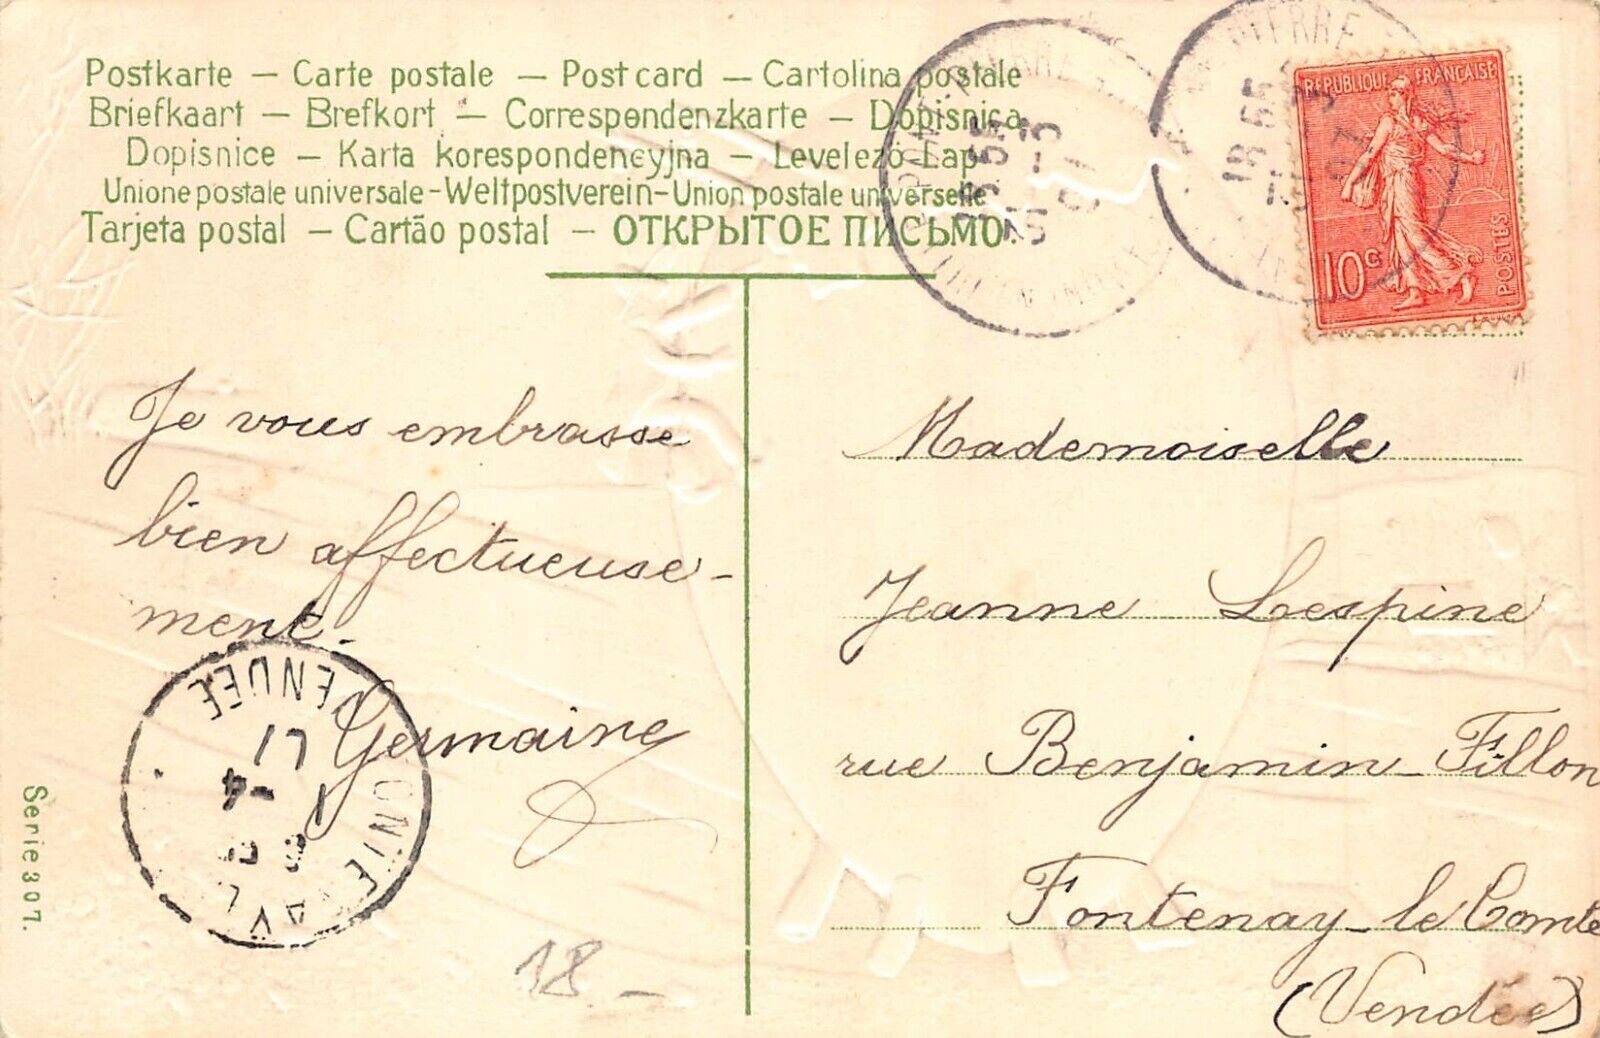 Postkarte — Carte postale — Post card — Cartolina postale
Briefkaart — Brefkort — Correspondenzkarte — Dopisnica
Dopisnice — Karta korespondencyjna — Levelező-Lap
Unione postale universale-Weltpostverein-Union postale universelle
Tarjeta postal — Cartão postal — ОТКРЫТОЕ ПИСЬМО
REPUBLIQUE FRANÇAISE
10c
POSTES
PIERRE
18 55
31 -3
07
Je vous embrasse
bien affectueuse-
ment.
Germaine
Mademoiselle
Jeanne Lespine
rue Benjamin-Fillon
Fontenay-le Comte
(Vendée)
VENDÉE
Serie 307.
18.-